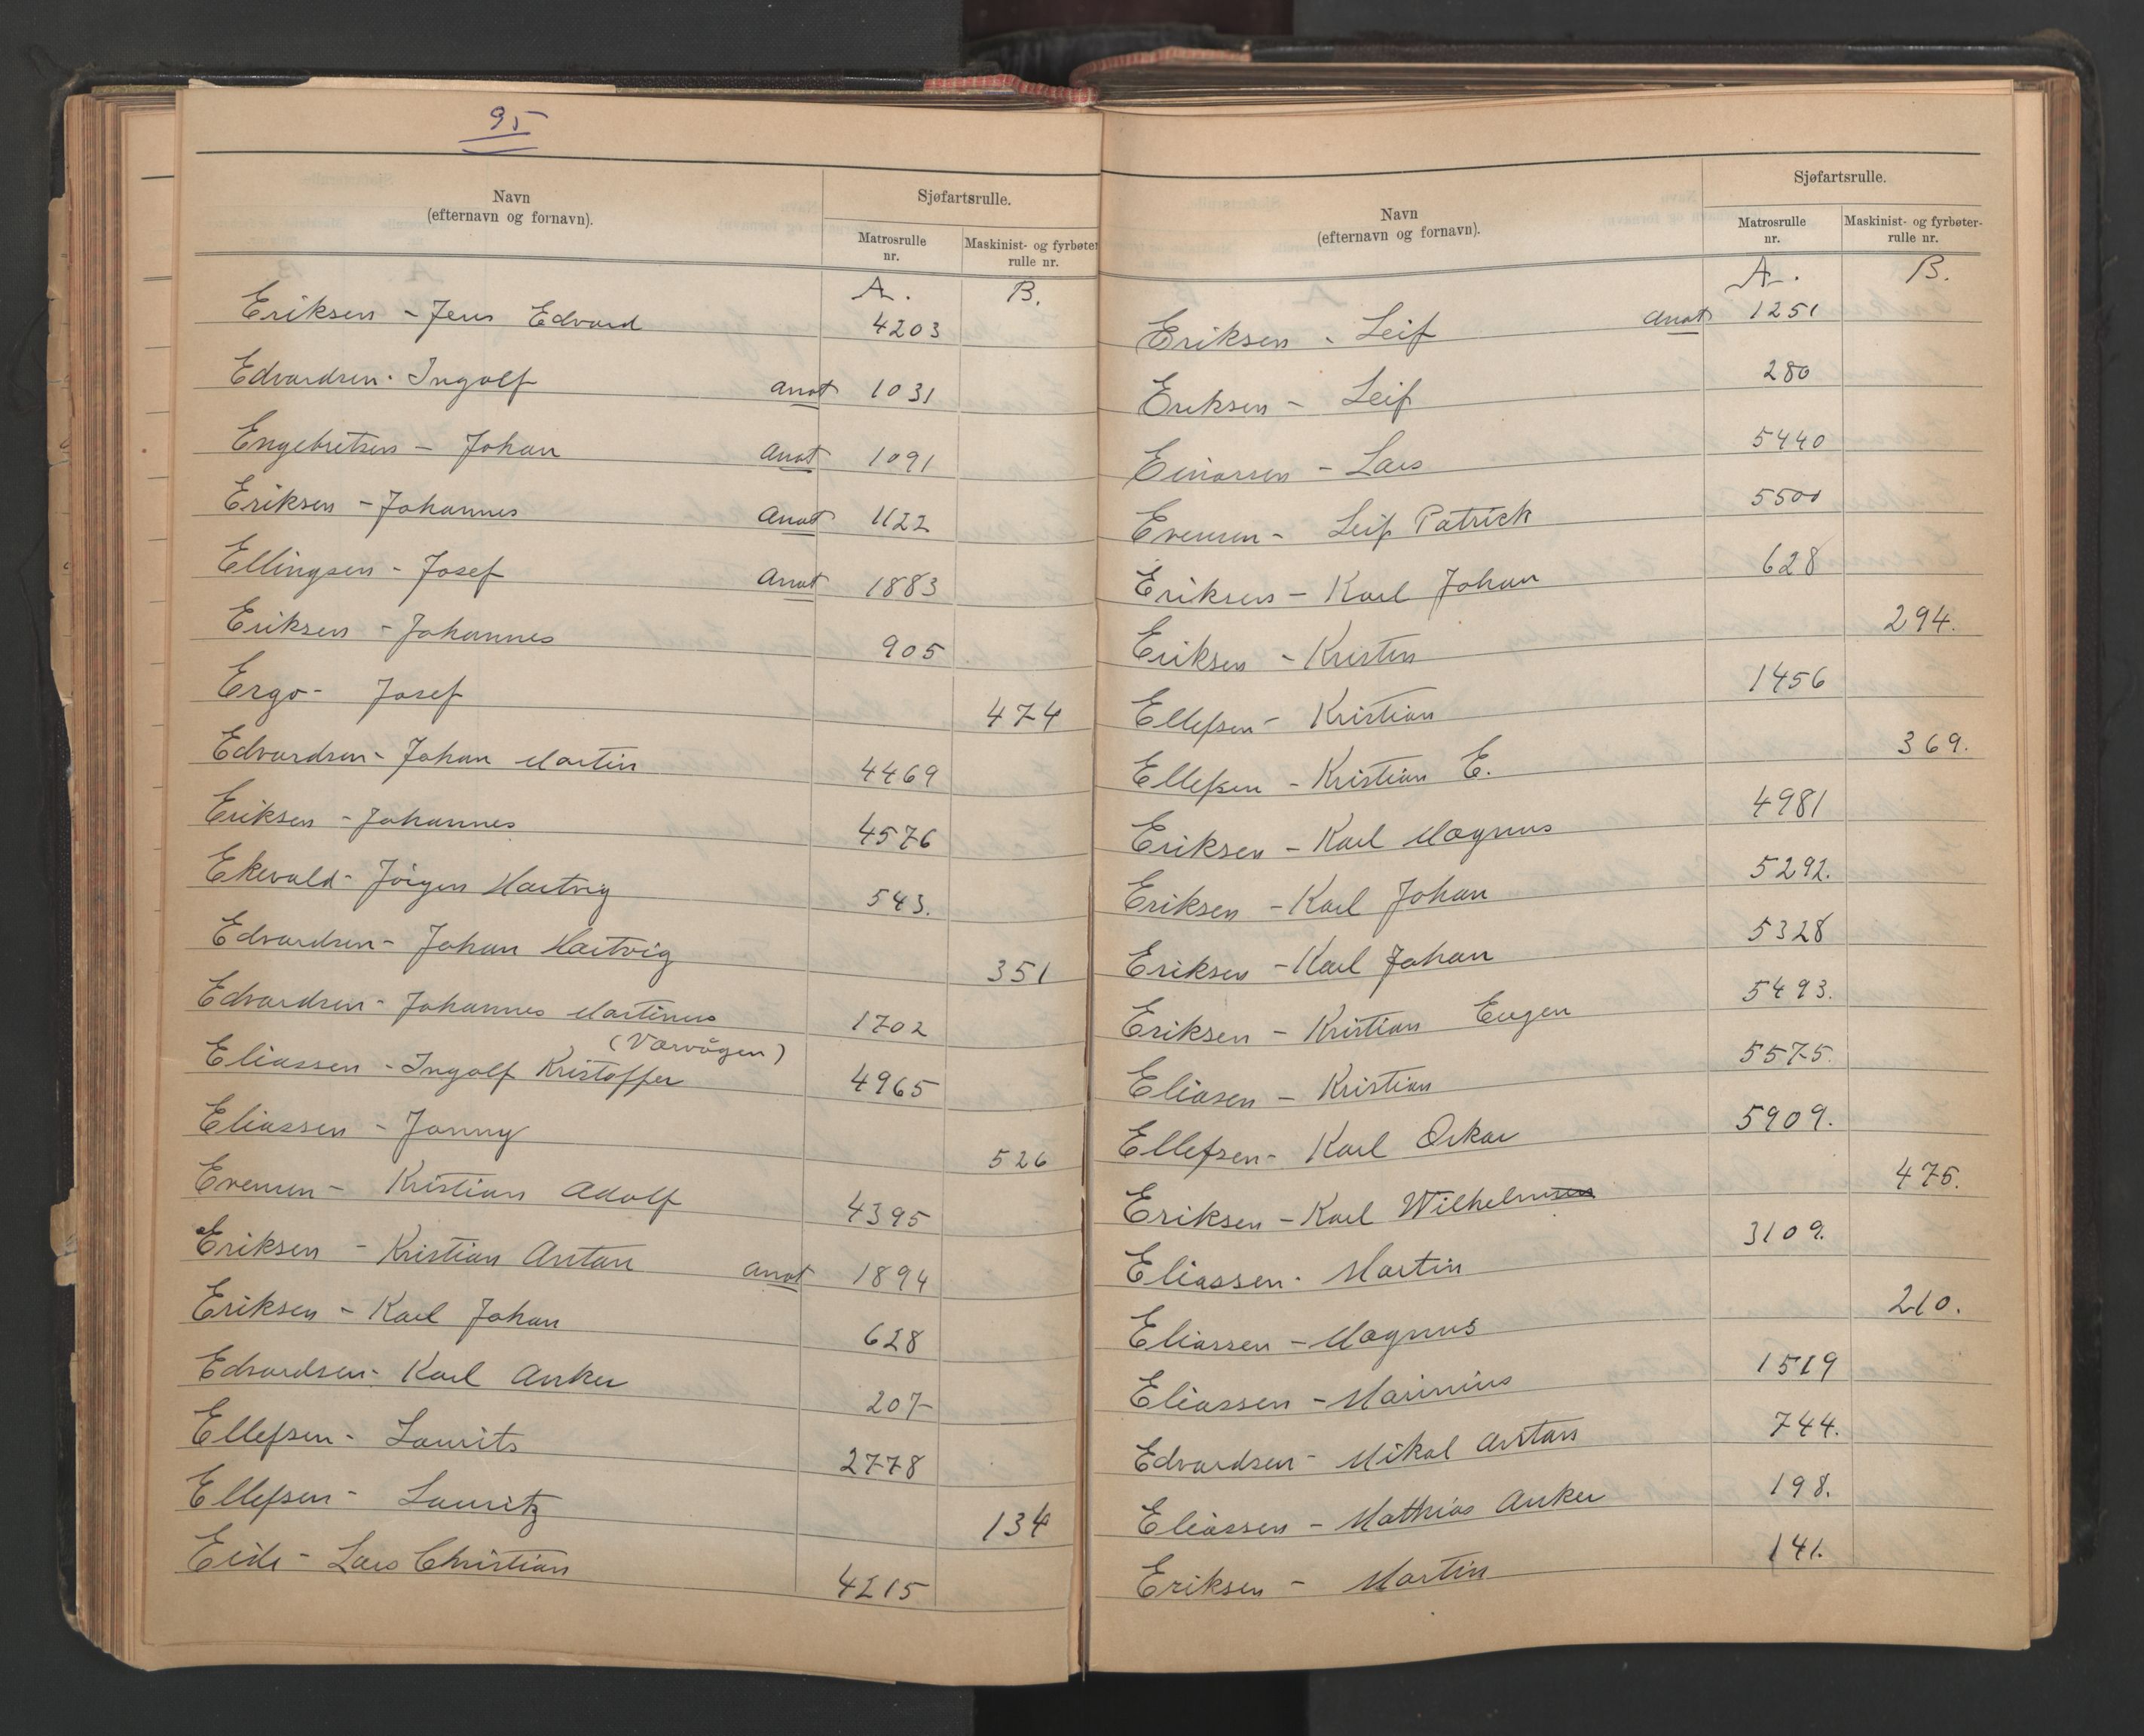 95
Navn
(efternavn og fornavn).
Sjøfartsrulle.
Matrosrulle
nr.
Maskinist- og fyrbøter
rulle nr.
A. B.
Eriksen - Jens Edvard 4203
Edvardsen - Ingolf anot 1031
Engebretsen - Johan anot 1091
Eriksen - Johannes anot 1122
Ellingsen - Josef anot 1883
Eriksen - Johannes 905
Ergo - Josef 474
Edvardsen - Johan Martin 4469
Eriksen - Johannes 4576
Ekevald - Jörgen Hartvig 543.
Edvardsen - Johan Hartvig 351
Edvardsen - Johannes Martinus 1702
(Varvågen)
Eliassen - Ingolf Kristoffer 4965
Eliassen - Jonny 526
Evensen - Kristian Adolf 4395
Eriksen - Kristian Anton anot 1894
Eriksen - Karl Johan 628
Edvardsen - Karl Anker 207
Ellefsen - Laurits 2778
Ellefsen - Lauritz 134
Eide - Lars Christian 4215
Navn
(efternavn og fornavn).
Sjøfartsrulle.
Matrosrulle
nr.
Maskinist- og fyrbøter-
rulle nr.
A. B.
Eriksen - Leif anot 1251
Eriksen - Leif 280
Einarsen - Lars 5440
Evensen - Leif Patrick 5500
Eriksen - Karl Johan 628
Eriksen - Kristen 294.
Ellefsen - Kristian 1456
Ellefsen - Kristian E. 369.
Eriksen - Karl Magnus 4981
Eriksen - Karl Johan 5292.
Eriksen - Karl Johan 5328
Eriksen - Kristian Eugen 5493.
Eliasen - Kristian 5575.
Ellefsen - Karl Oskar 5909.
Eriksen - Karl Wilhelm 475.
Eliassen - Martin 3109.
Eliassen - Magnus 210.
Eliassen - Marinius 1519
Edvardsen - Mikal Antan 744.
Eliassen - Mathias Anker 198.
Eriksen - Martin 141.